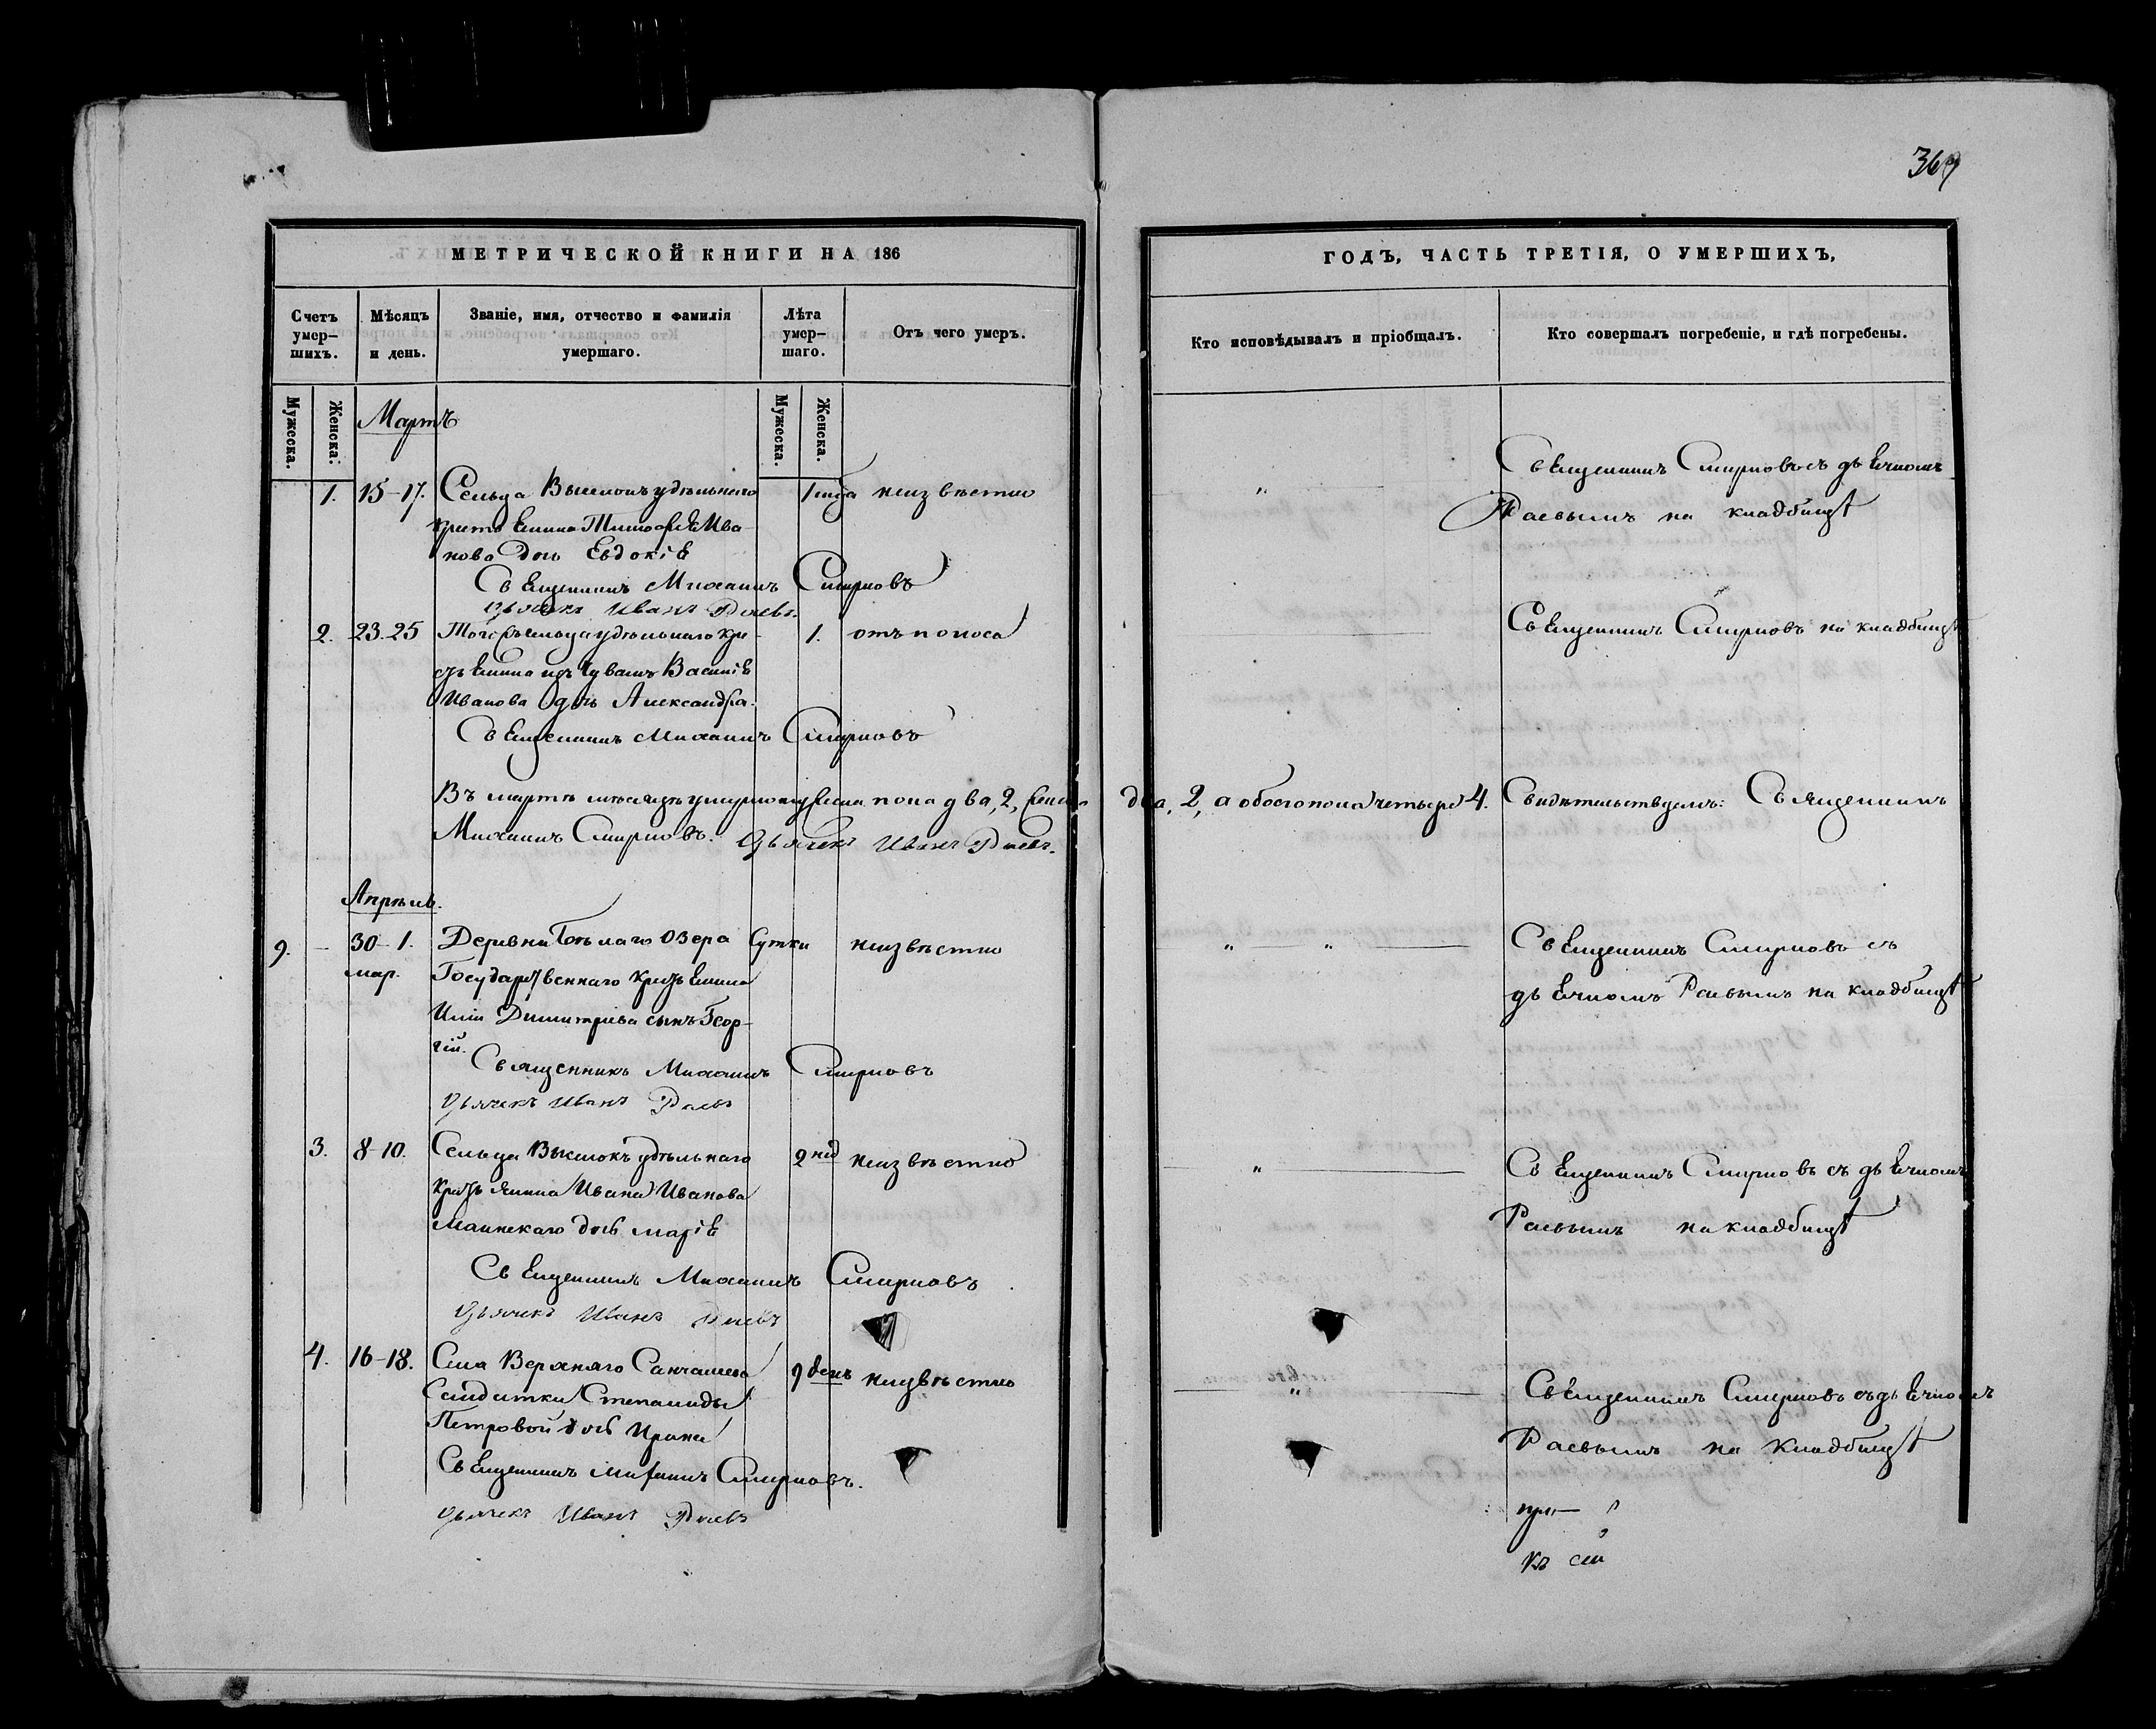 369
МЕТРИЧЕСКОЙ КНИГИ НА 186
ГОДЪ, ЧАСТЬ ТРЕТІЯ, О УМЕРШИХЪ,
Счетъ умер–шихъ.
Мѣсяцъ и день.
Званіе, имя, отчество и фамилія умершаго.
Лѣта умер–шаго.
Отъ чего умеръ.
Кто исповѣдывалъ и пріобщалъ.
Кто совершалъ погребеніе, и гдѣ погребены.
Мужеска.
Женска.
Мартъ
Мужеска.
Женска.
1. 15–17. Сельца Выселокъ удѣльнаго
Ива–
нова дочь Евдокія
неизвѣстно
Священникъ Смирновъ съ дьячкомъ
Раевымъ на кладбищѣ
Священникъ Михаилъ Смирновъ
Дьячекъ Иванъ Раевъ.
2. 23.25 Тогожъ сельца удѣльнаго кре–
стьянина изъ Чувашъ Василія
Иванова дочь Александра.
1. отъ поноса
Священникъ Смирновъ на кладбищѣ
Священникъ Михаилъ Смирновъ
Въ мартѣ мѣсяцѣ умерло мужеска пола два, 2, женска два, 2, а обоего пола четыре 4. Свидѣтельствуемъ: Священникъ
Михаилъ Смирновъ. Дьячекъ Иванъ Раевъ.
Апрѣль.
9. – 30–1. Деревни Бѣлаго Озера Сутки неизвѣстно
мар. Государственнаго крестьянина
Иліи Димитріева сынъ Геор–
гій.
Священникъ Смирновъ съ
дьячкомъ Раевымъ на кладбищѣ
Священникъ Михаилъ Смирновъ
Дьячекъ Иванъ Раевъ
3. 8–10. Сельца Выселокъ удѣльнаго 2 нед неизвѣстно
крестьянина Ивана Иванова
Маинскаго дочь Марія
Священникъ Смирновъ съ дьячкомъ
Раевымъ на кладбищѣ
Священникъ Михаилъ Смирновъ
Дьячекъ Иванъ Раевъ
4. 16–18. Села Верхняго Санчалеева 9 день неизвѣстно
Солдатки Степаниды
Петровой дочь Ирина
Священникъ Смирновъ съ дьячкомъ
Раевымъ на кладбищѣ
Священникъ Михаилъ Смирновъ.
Дьячекъ Иванъ Раевъ
къ сей